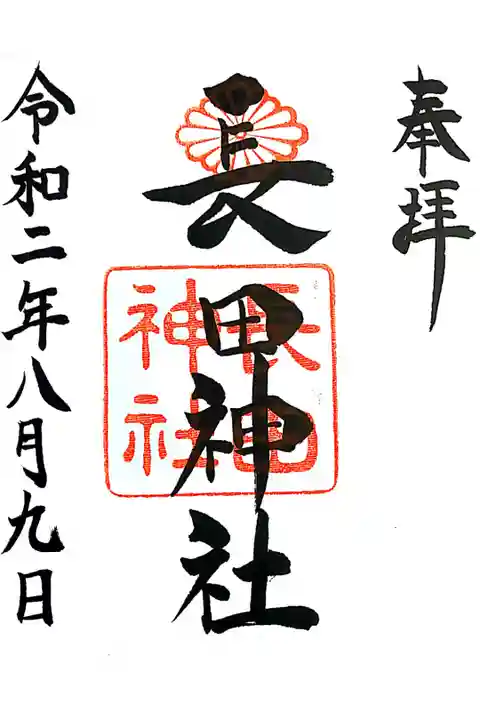 奉拝
長田神社
長田
神社
令和二年八月九日